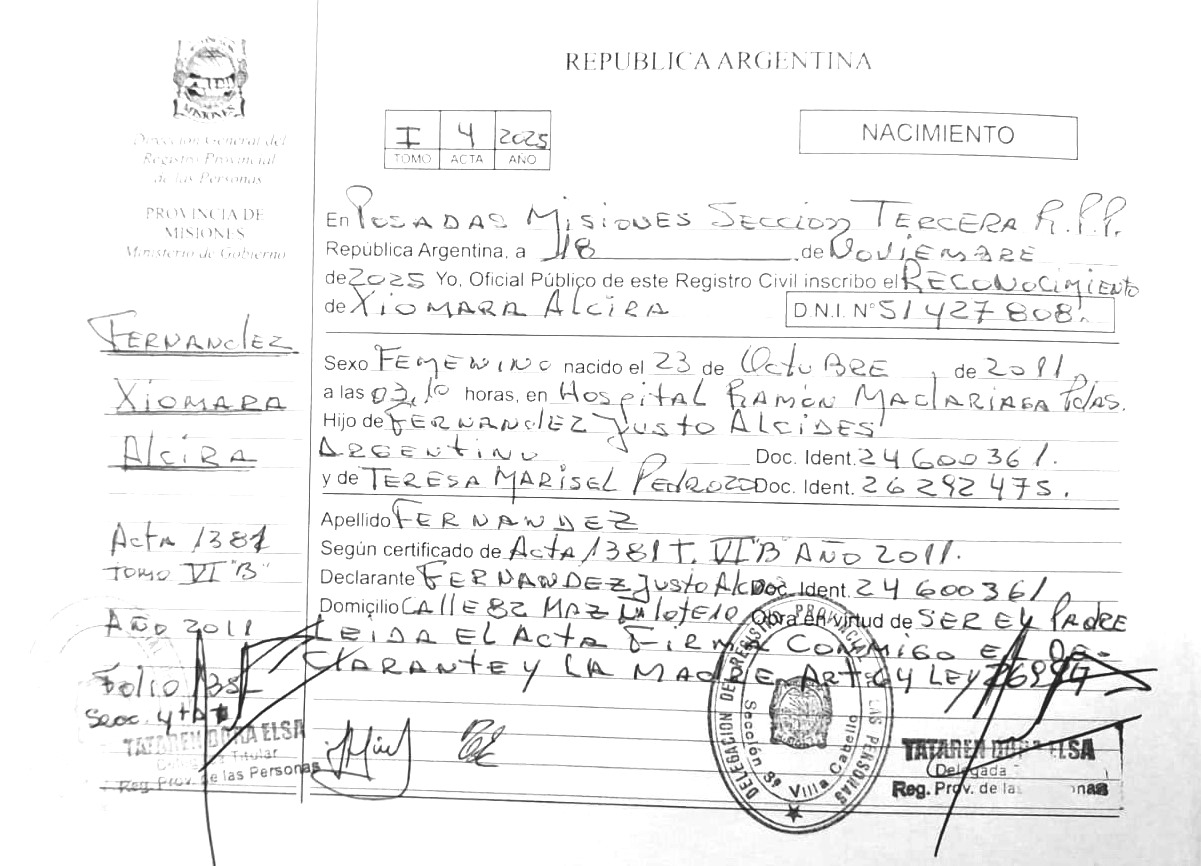 REPUBLICA ARGENTINA
MISIONES
Dirección General del
Registro Provincial
de las Personas
PROVINCIA DE
MISIONES
Ministerio de Gobierno
I 4 2025
TOMO ACTA AÑO
NACIMIENTO
En POSADAS MISIONES SECCION TERCERA R.P.P.
República Argentina, a 18 de NOVIEMBRE
de 2025 Yo, Oficial Público de este Registro Civil inscribo el RECONOCIMIENTO
de XIOMARA ALCIRA D.N.I. N° 51 427 808.
FERNANDEZ
XIOMARA
ALCIRA
Sexo FEMENINO nacido el 23 de OctuBRE de 2011
a las 03,10 horas, en HOSPITAL RAMÓN MADARIAGA Pdas.
Hijo de FERNANDEZ JUSTO ALCIDES
ARGENTINO Doc. Ident. 24 600 361.
y de TERESA MARISEL PEDROZO Doc. Ident. 26 292 475.
Apellido FERNANDEZ
Según certificado de Acta 1381 T. VI "B" AÑO 2011.
Declarante FERNANDEZ JUSTO Doc. Ident. 24 600 361
Domicilio CALLE 82 Obra en virtud de SER EL PADRE
LEIDA EL ACTA FIRMA CONMIGO EL DE-
CLARANTE Y LA MADRE. ART 64 LEY 26994
Acta 1381
TOMO VI "B"
AÑO 2011
Folio
TATAREN DORA ELSA
Titular
Reg. Prov. de las Personas
DELEGACION DEL REGISTRO PROVINCIAL DE LAS PERSONAS
Sección 3ª Villa Cabello
TATAREN DORA ELSA
Delegada
Reg. Prov. de las